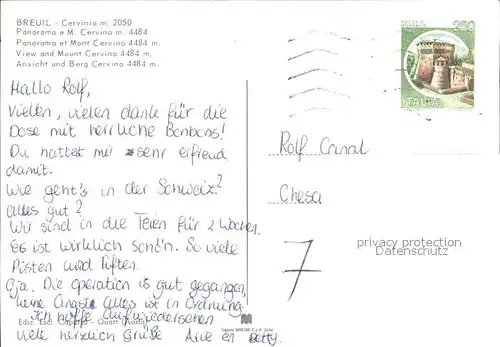 BREUIL - Cervinia m. 2050
Panorama e M. Cervino m. 4484
Panorama et Mont Cervino 4484 m.
View and Mount Cervino 4484 m.
Ansicht und Berg Cervino 4484 m.
250
ITALIA
Hallo Rolf,
Vielen, vielen danke für die
Dose mit herrliche Bonbons!
Du hattet mir sehr erfreud
damit.
Wie geht's in der Schweiz?
alles gut?
Wir sind in die Ferien für 2 Wochen.
Es ist wirklich schön. So viele
Pisten und Liften.
Oja. Die operation is gut gegangen,
keine Angst alles ist in Ordnung
Ich hoffe auf wiedersehen
viele herzlich Grüße Arie en Betty.
Rolf Canal
Chesa
7
privacy protection
Datenschutz